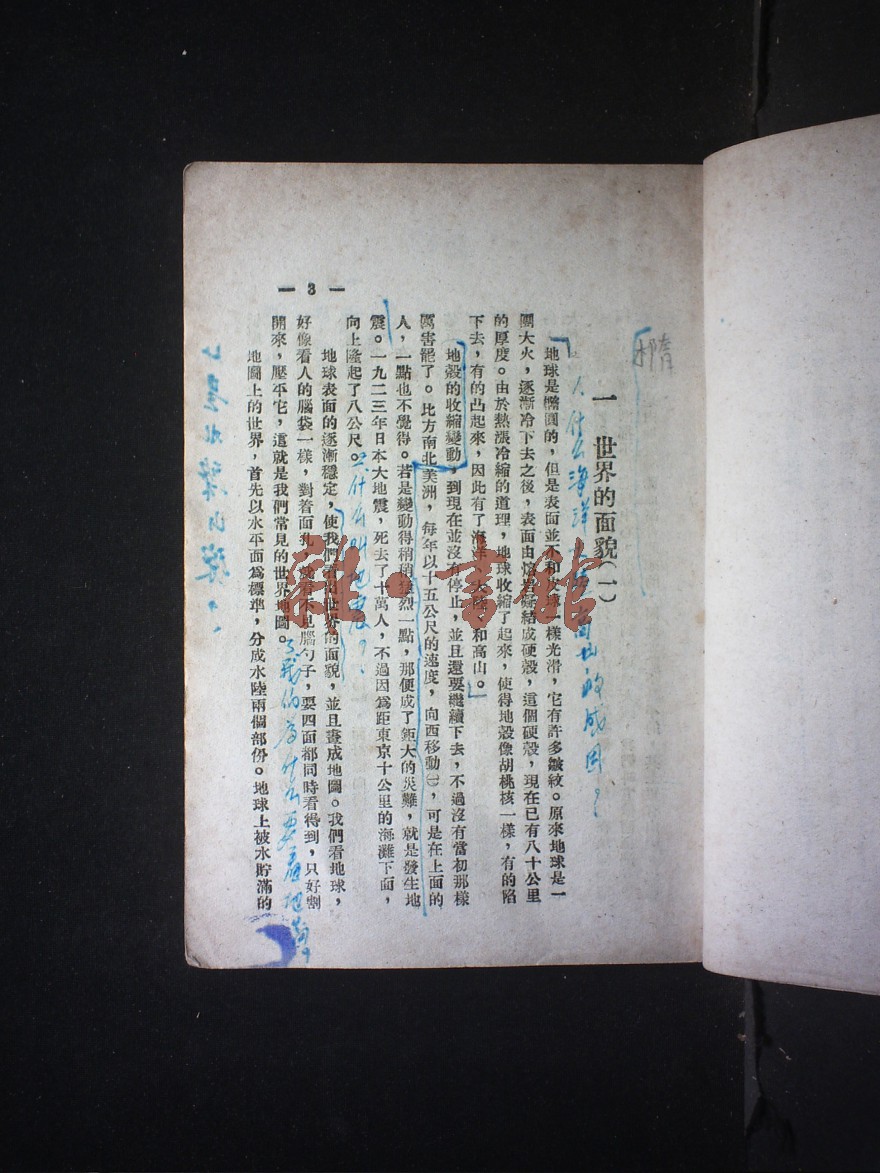 一 世界的面貌(一)
地球是橢圓的，但是表面並不和皮球一樣光滑，它有許多皺紋。原來地球是一
團大火，逐漸冷下去之後，表面由熔岩凝結成硬殼，這個硬殼，現在已有八十公里
的厚度。由於熱漲冷縮的道理，地球收縮了起來，使得地殼像胡桃核一樣，有的陷
下去，有的凸起來，因此有了海洋、大陸和高山。
地殼的收縮變動，到現在並沒有停止，並且還要繼續下去，不過沒有當初那樣
厲害罷了。比方南北美洲，每年以十五公尺的速度，向西移動㈠，可是在上面的
人，一點也不覺得。若是變動得稍稍猛烈一點，那便成了鉅大的災難，就是發生地
震。一九二三年日本大地震，死去了十萬人，不過因爲距東京十公里的海灘下面，
向上隆起了八公尺。
地球表面的逐漸穩定，使我們看出世界的面貌，並且畫成地圖。我們看地球，
好像看人的腦袋一樣，對着面孔，就看不見腦勺子，要四面都同時看得到，只好割
開來，壓平它，這就是我們常見的世界地圖。
地圖上的世界，首先以水平面爲標準，分成水陸兩個部份。地球上被水貯滿的
— 3 —
1 什么海洋大陸高山的成因？
2 什么叫地震？
3 我们为什么要
雜·書館